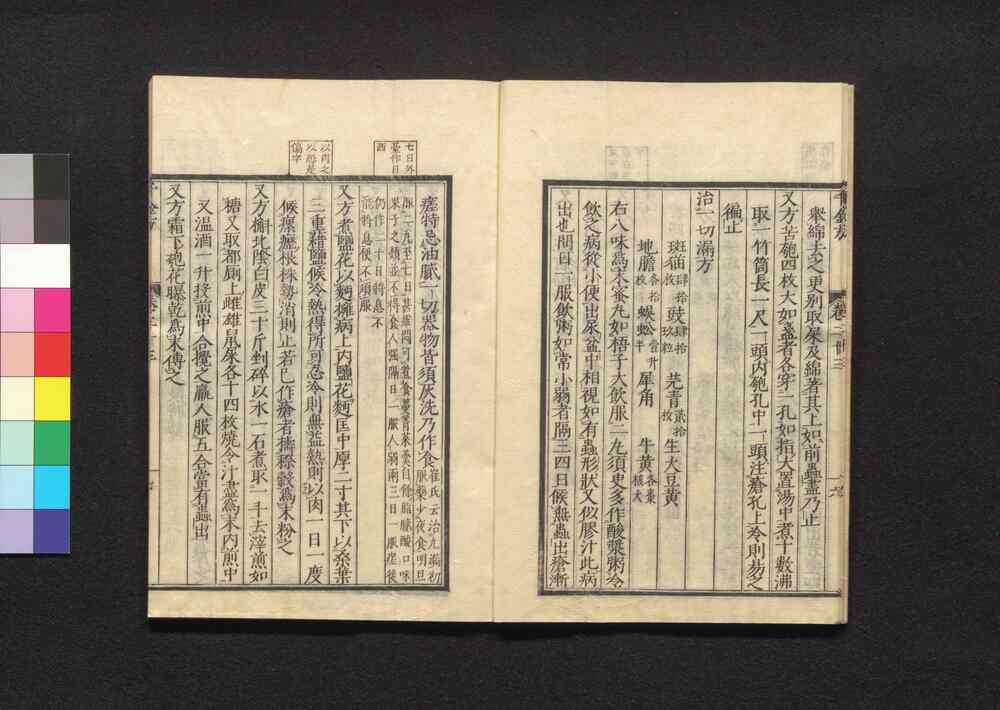 熬綿去之更别取屎及綿著其上如前蟲盡乃止
又方苦匏四枚大如盞者各穿一孔如指大置湯中煮十數沸
取一竹筒長一尺一頭内匏孔中一頭注瘡孔上冷則易之
徧止
治一切漏方
斑猫肆拾枚 豉肆拾玖粒 芫青貳拾枚 生大豆黄
地膽各拾枚 蜈蚣壹寸升 犀角 牛黄各棗核大半
右八味爲末蜜丸如梧子大飲服二丸須臾多作酸漿粥冷
飲之病從小便出尿盆中相視如有蟲形狀又似膠汁此病
出也閒日一服飲粥如常小弱者隔三四日候無蟲出瘡漸
瘥特忌油膩一切器物皆須灰洗乃作食崔氏云治九漏初
服藥少夜食明旦
服二丸至七日甚
七日外
臺作日
西
果子之類並不得食人强隔日一服人弱兩三日一服瘥後
仍作二十日將息不
能將息便不須服
又方煮鹽花以麪擁病上内鹽花麪匡中厚二寸其下以桑葉
三重藉鹽候冷熱得所可忍冷則無益熱則以肉一日一度
以肉之
以恐是
傷字
候瘰癧根株勢消則止若已作瘡者擣穄穀爲末粉之
又方槲北陰白皮三十斤剉碎以水一石煮取一斗去滓煎如
糖又取都厠上雌雄鼠屎各十四枚燒令汁盡爲末内煎中
又温酒一升投煎中合攪之羸人服五合當有蟲出
又方霜下匏花曝乾爲末傅之